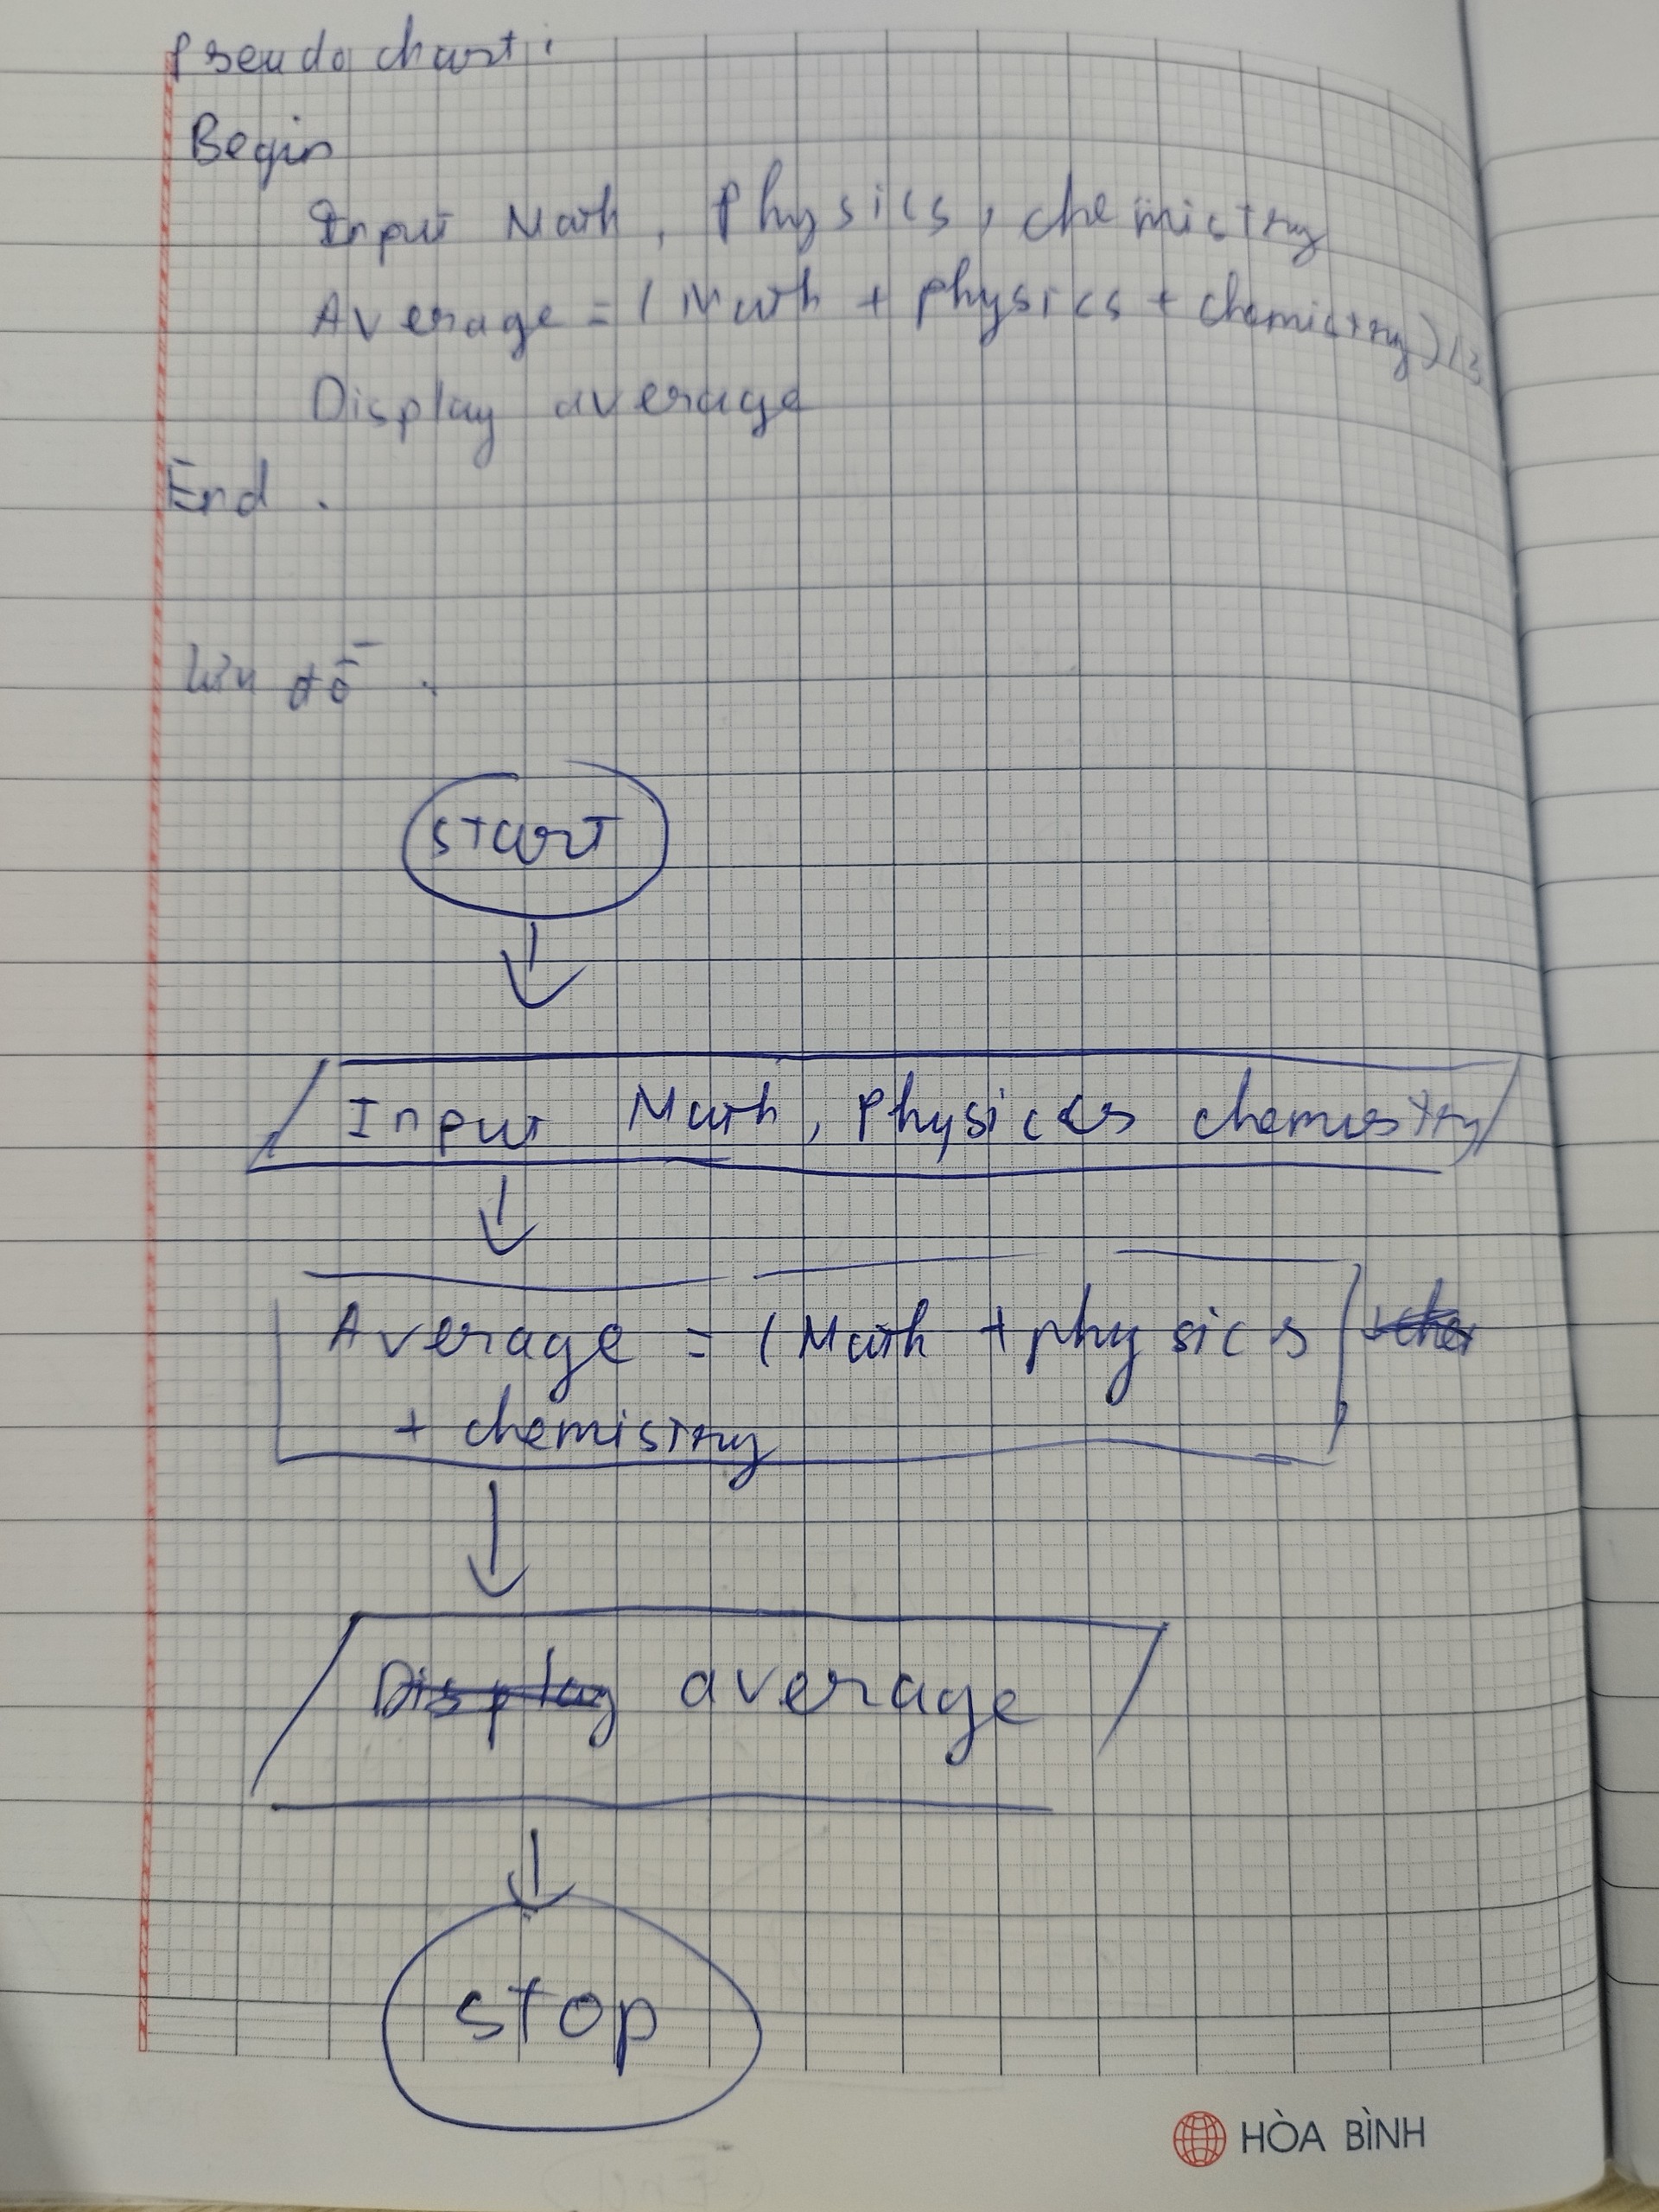 Pseudo chart :
Begin
Input Math, Physics, chemistry
Average = (Math + physics + chemistry)/3
Display average
End .
lưu đồ :
start
Input Math, Physics chemistry
Average = (Math + physics
+ chemistry
Display average
stop
HÒA BÌNH